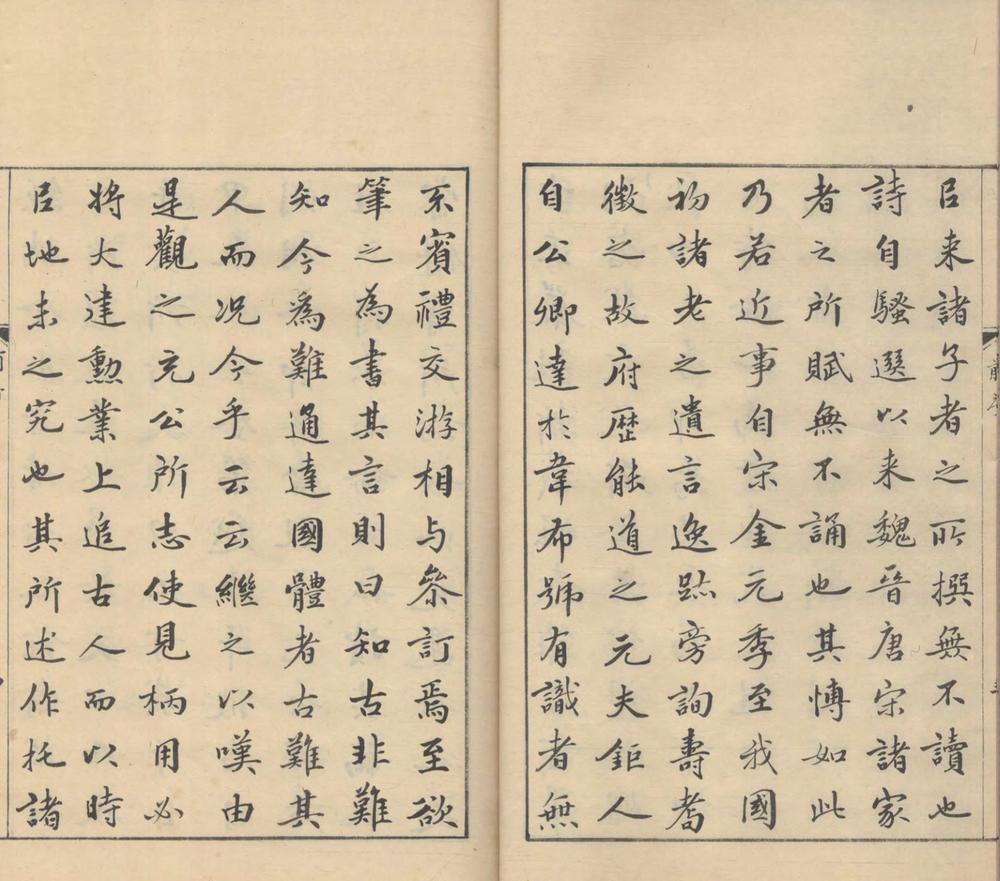 臣来諸子者之所撰無不讀也
詩自騷選以来魏晉唐宋諸家
者之所賦無不誦也其愽如此
乃若近事自宋金元季至我國
初諸老之遺言逸跡旁詢壽耇
徵之故府歴能道之元夫鉅人
自公卿達於韋布號有識者無
不賓禮交游相与叅訂焉至欲
筆之為書其言則曰知古非難
知今為難通達國體者古難其
人而况今乎云云繼之以嘆由
是觀之充公所志使見柄用必
將大建勳業上追古人而以時
臣地未之究也其所述作托諸